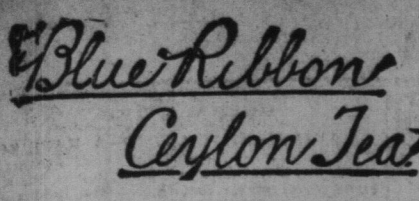 Blue Ribbon
Ceylon Tea.